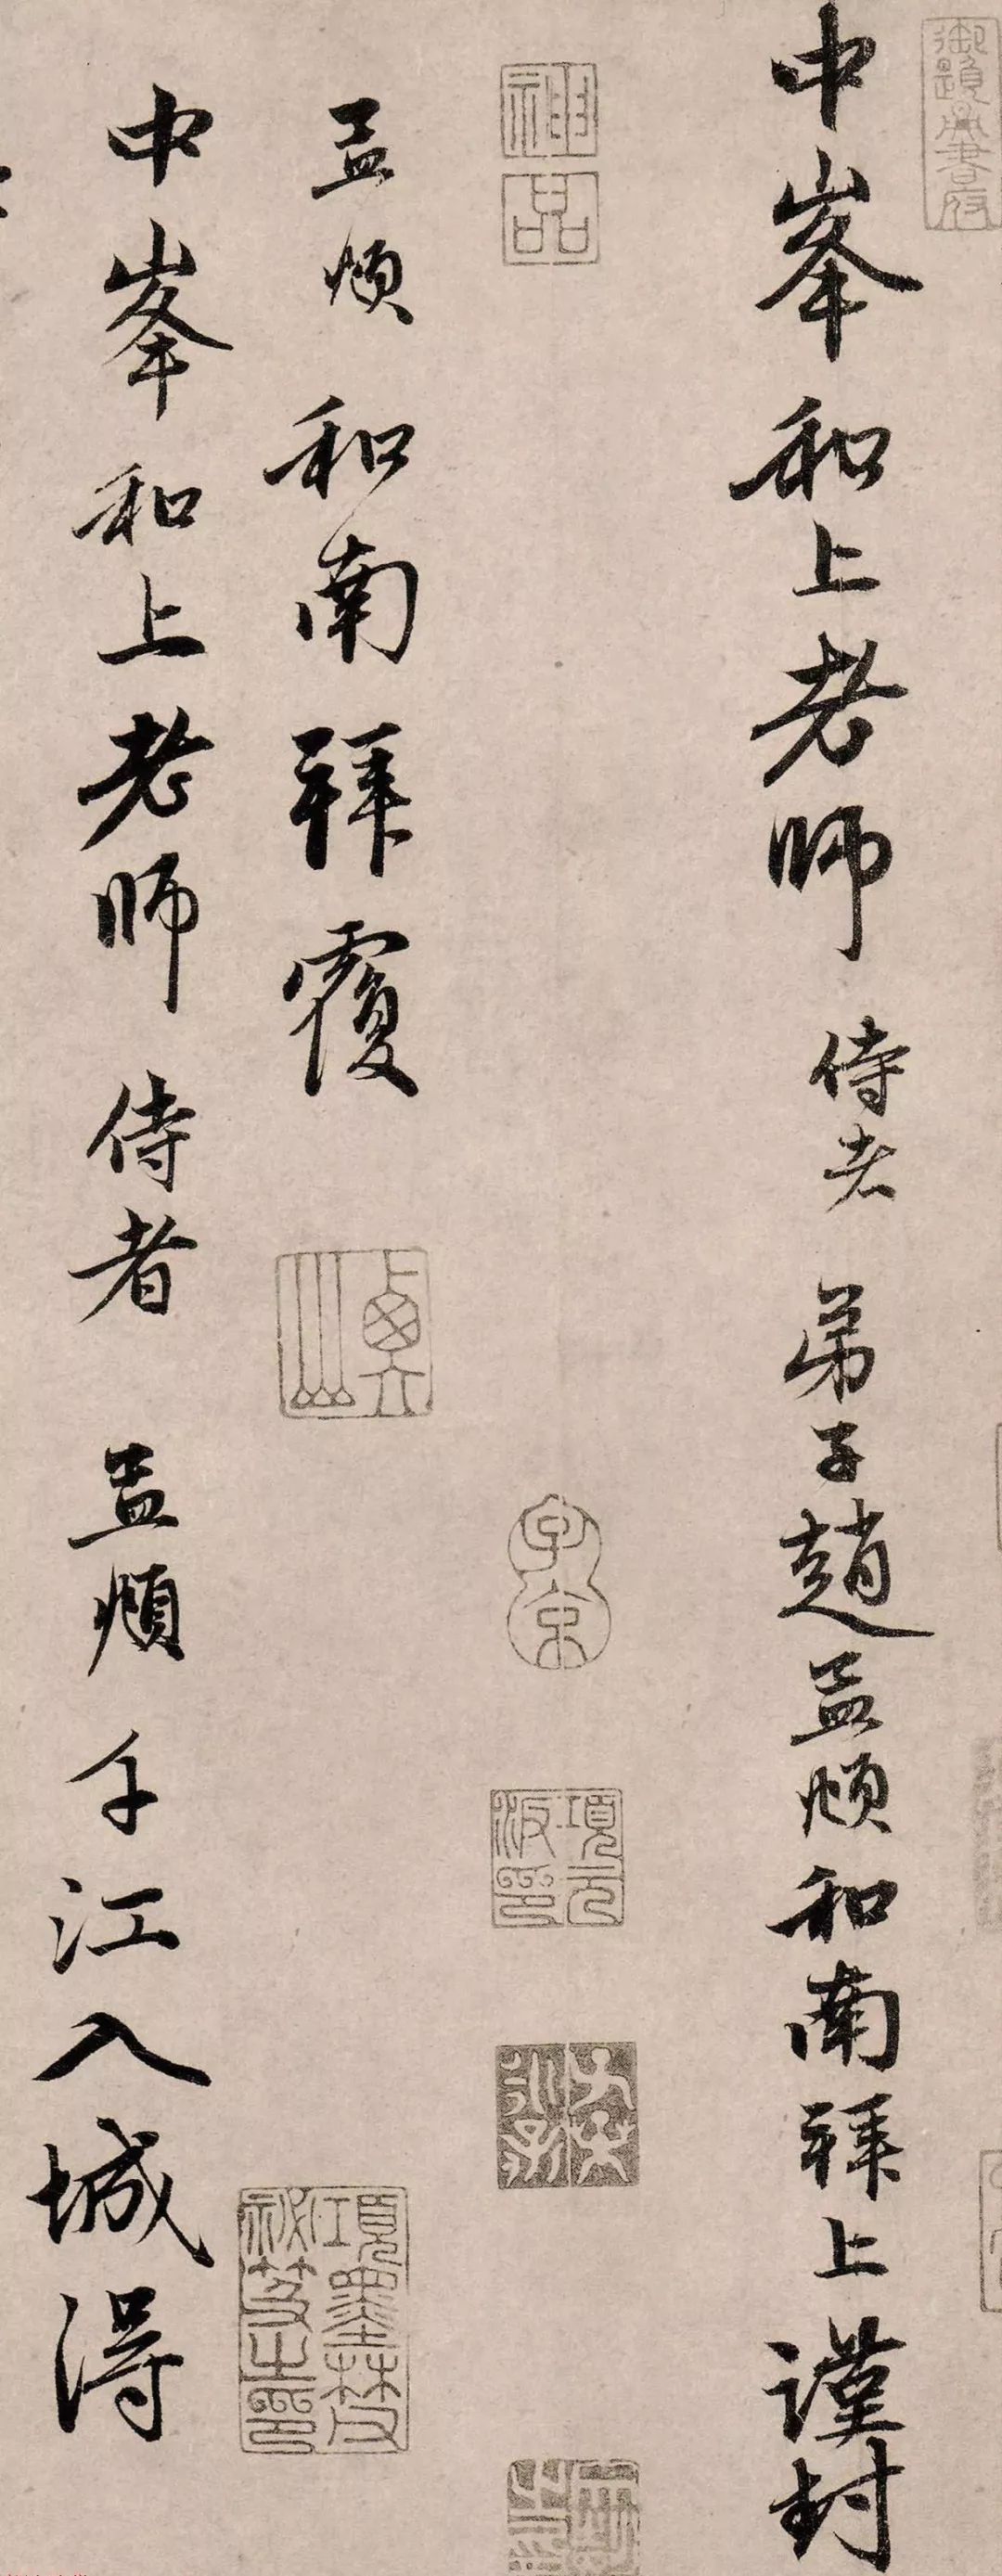 中峯和上老師 侍者 弟子趙孟頫和南拜上謹封
孟頫和南拜覆
中峯和上老師侍者 孟頫千江入城得
神
品
子京
項元汴印
項墨林父祕笈之印